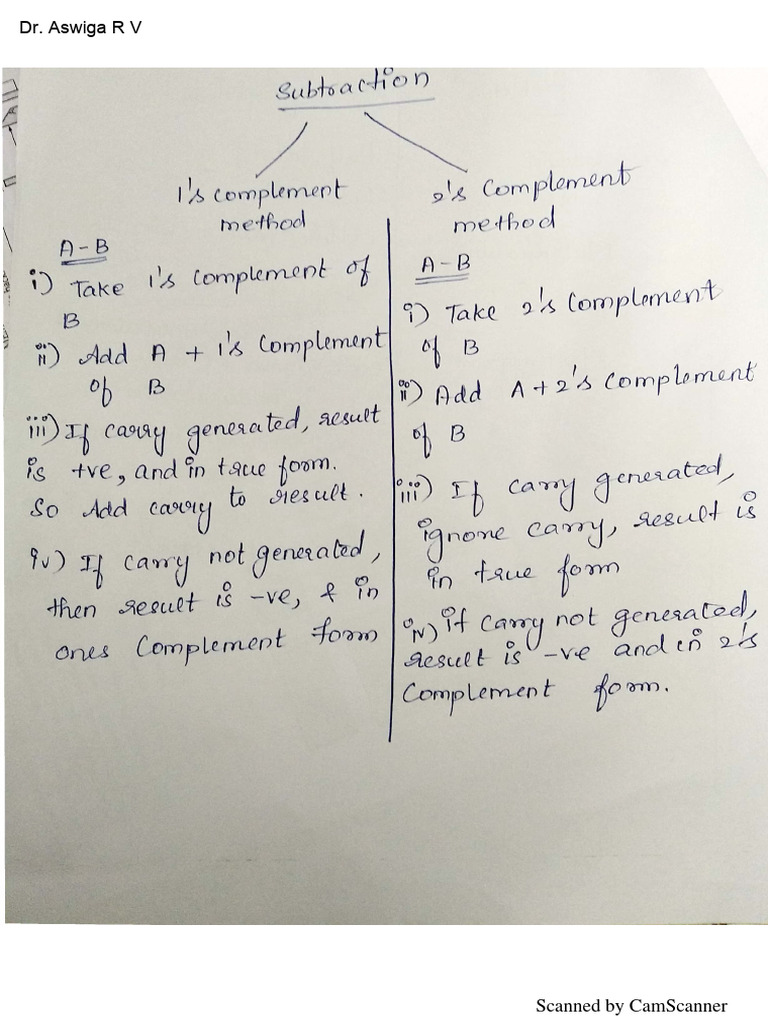 Dr. Aswiga R V
Subtraction
1's complement
method
A-B
i) Take 1's complement of
B
ii) Add A + 1's Complement
of B
iii) If carry generated, result
is +ve, and in true form.
So Add carry to result.
iv) If carry not generated,
then result is -ve, & in
ones Complement form
2's Complement
method
A-B
i) Take 2's Complement
of B
ii) Add A+2's Complement
of B
iii) If carry generated,
ignore carry, result is
in true form
iv) if carry not generated,
result is -ve and in 2's
Complement form.
Scanned by CamScanner